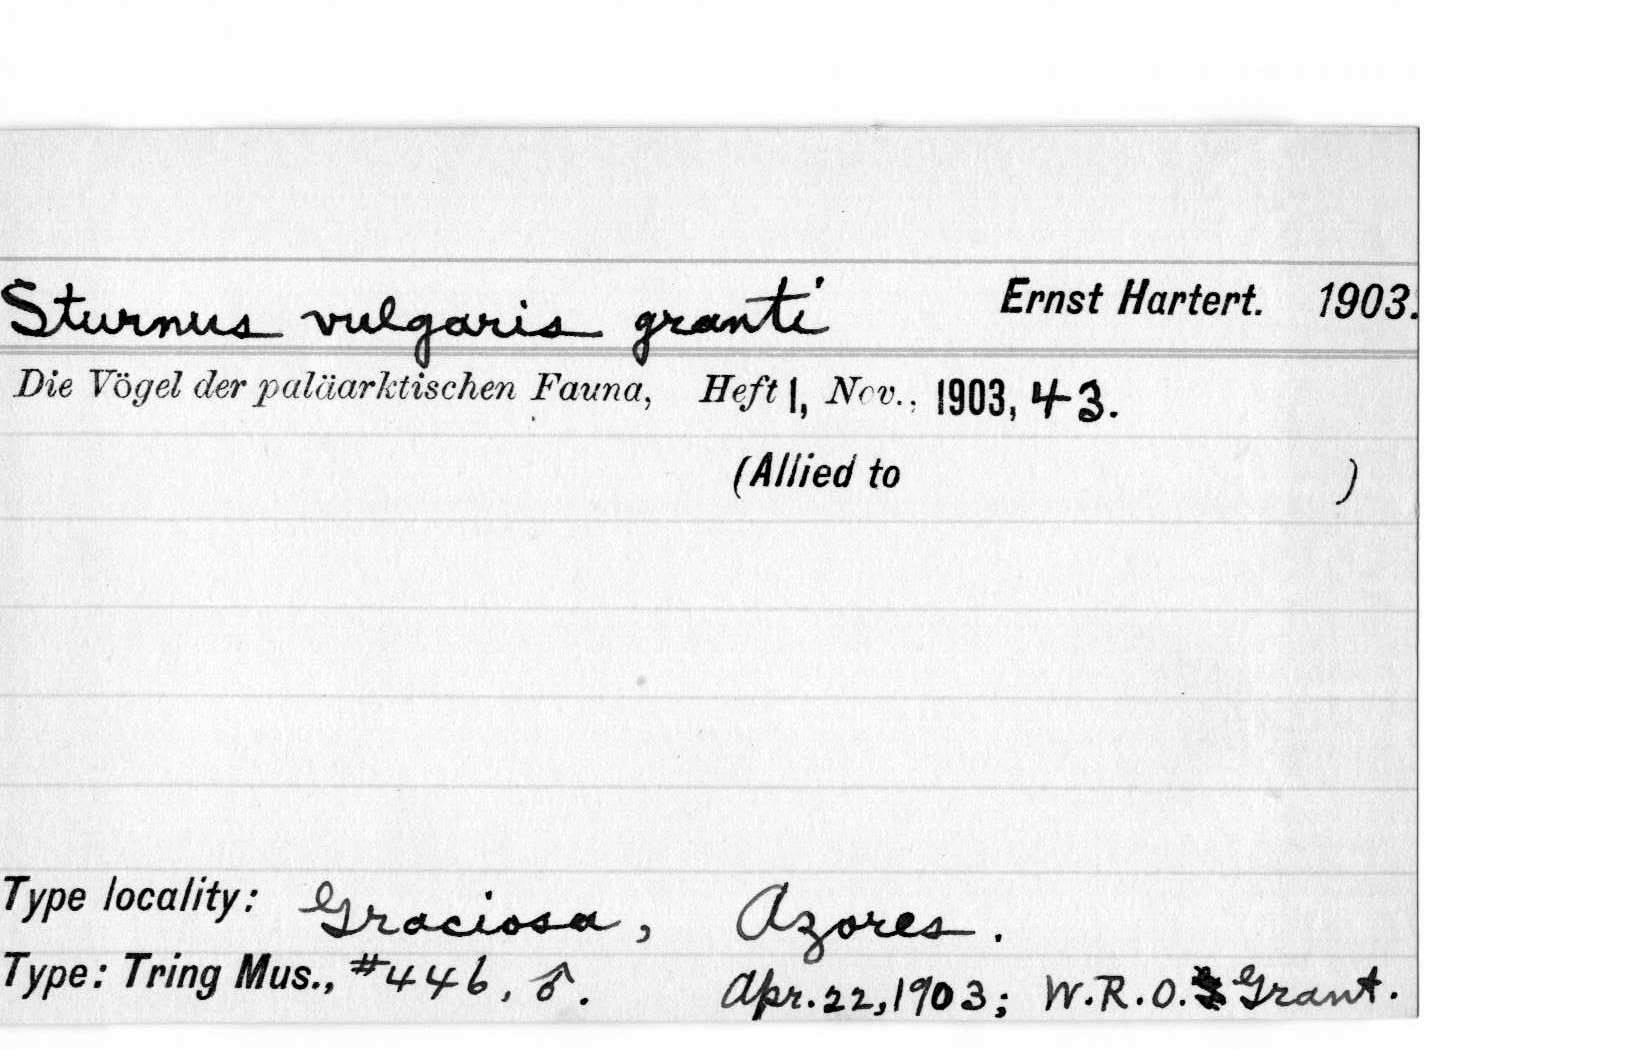 Sturnus vulgaris granti Ernst Hartert. 1903.
Die Vögel der paläarktischen Fauna, Heft 1, Nov., 1903, 43.
(Allied to )
Type locality: Graciosa, Azores.
Type: Tring Mus., #446, ♂. Apr. 22, 1903; W. R. O. Grant.